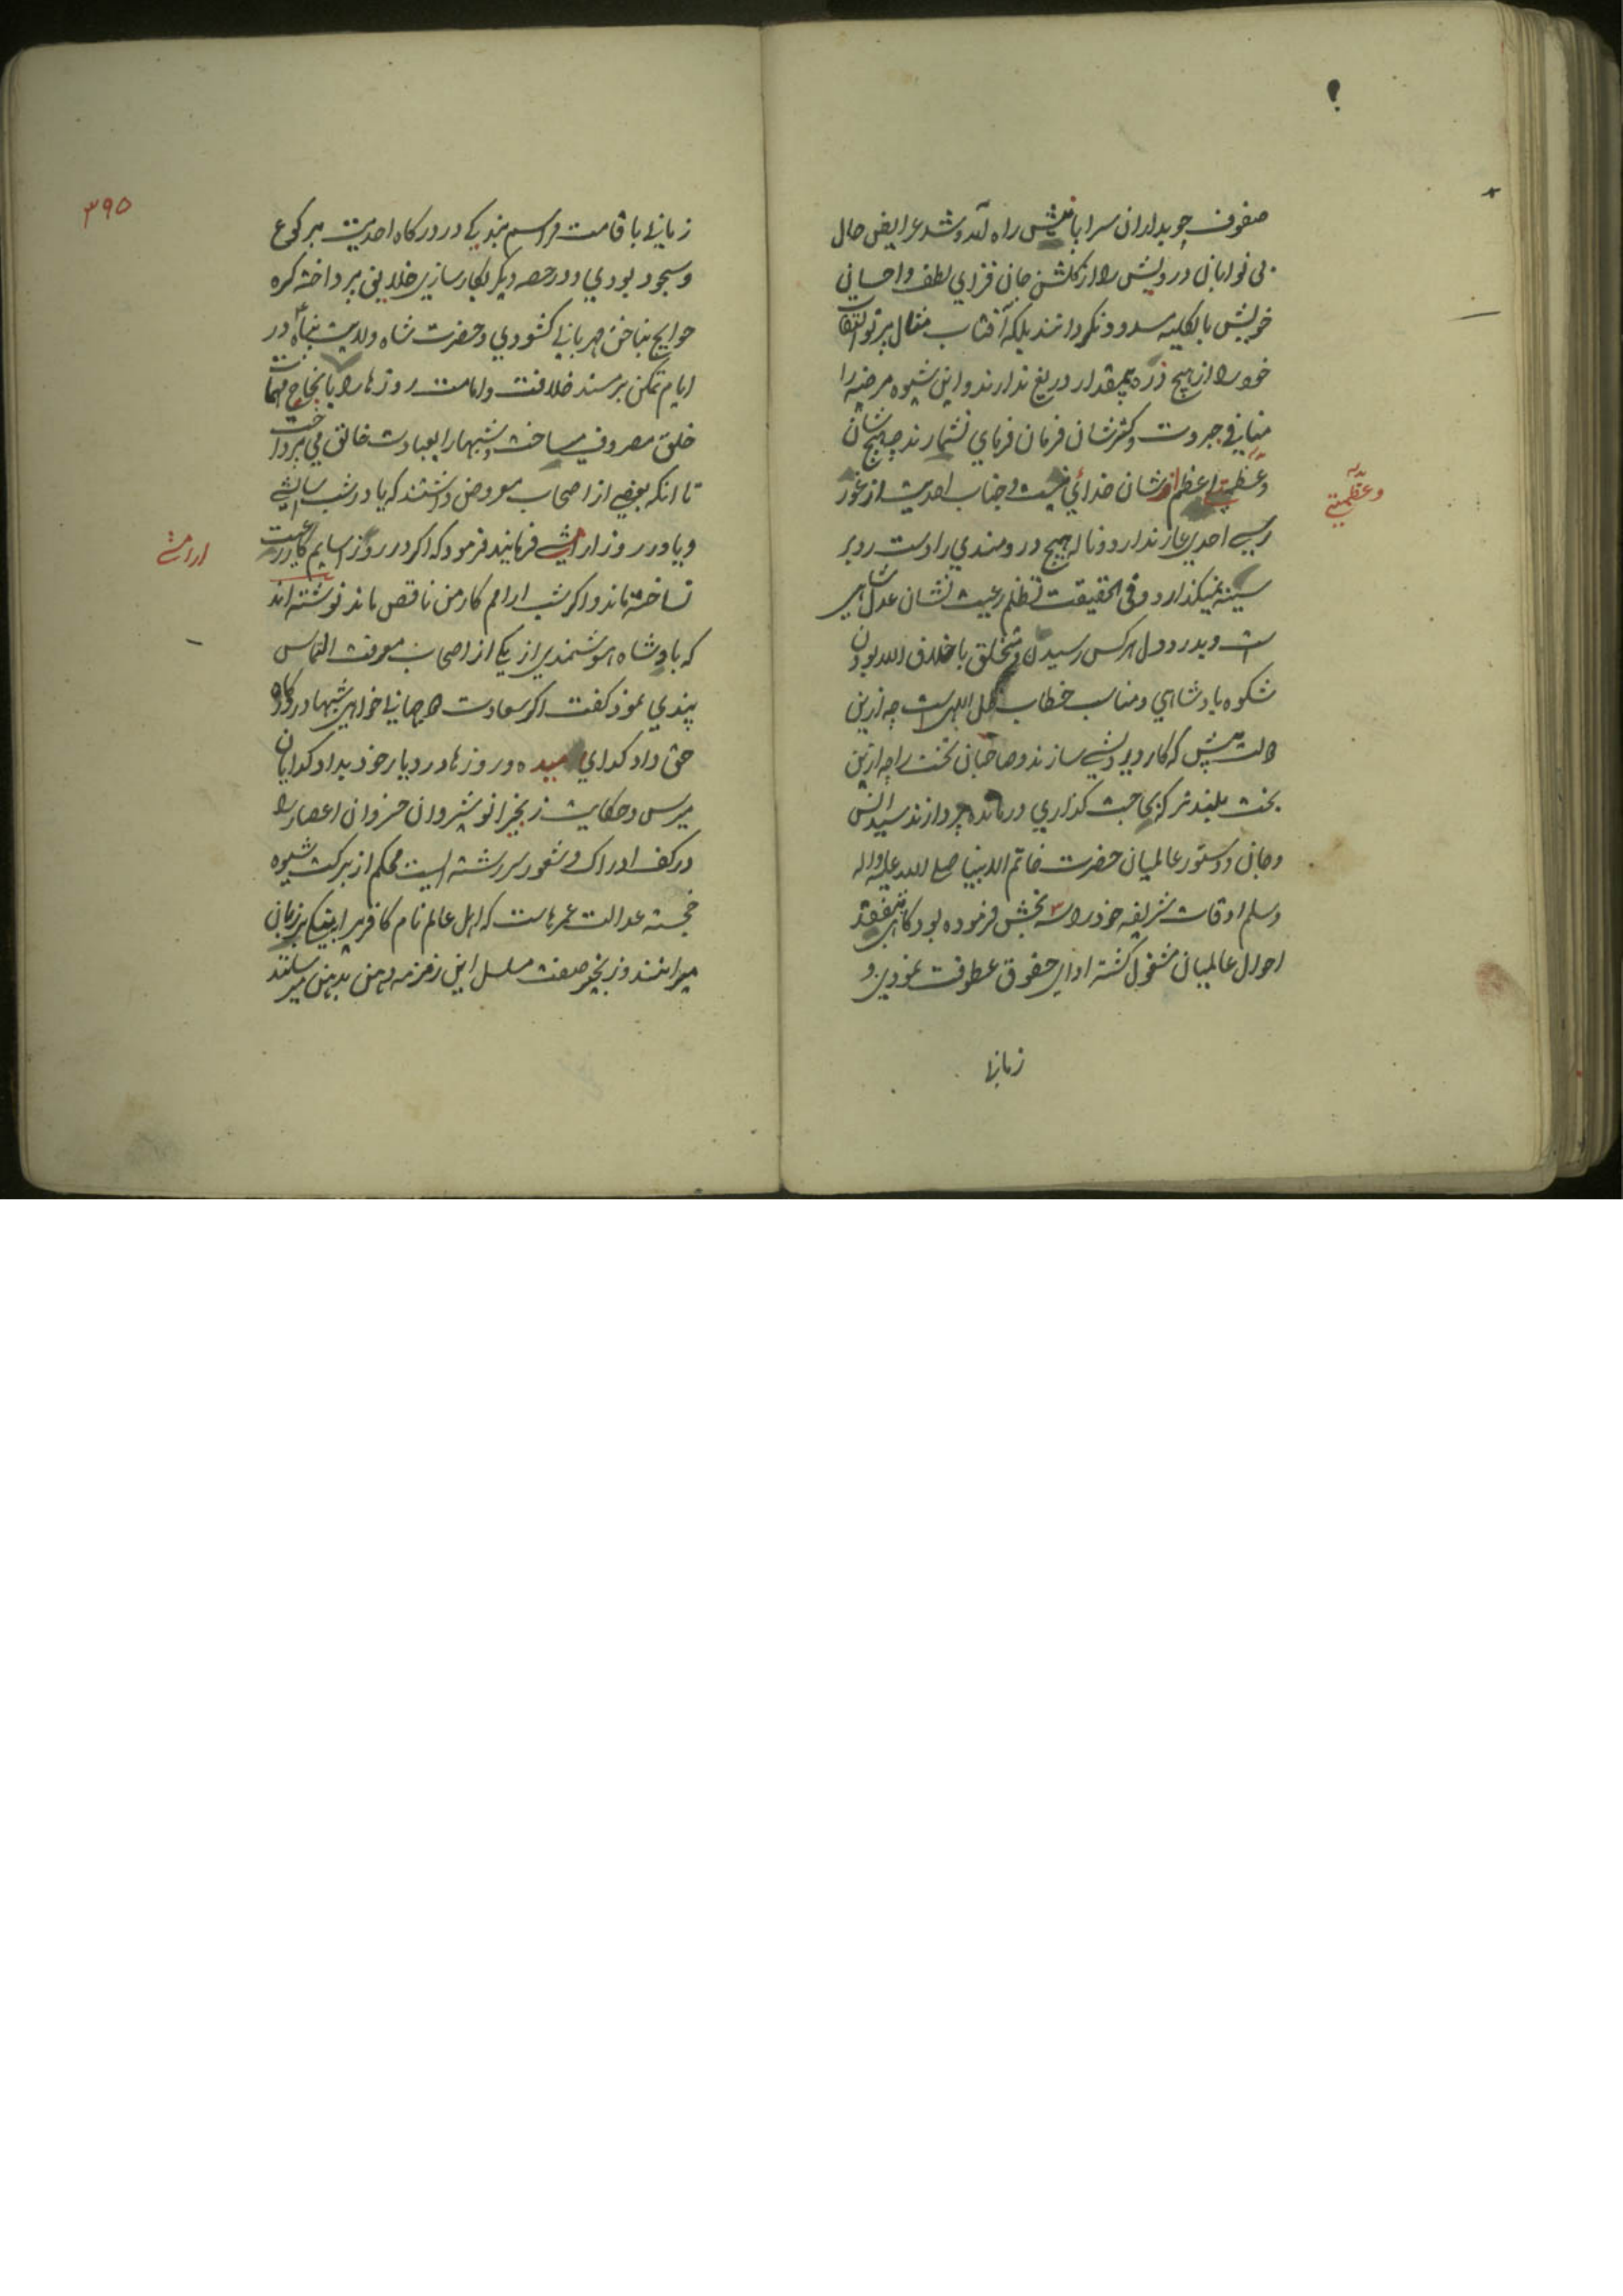 صفوف چوبداران سراپا نیش راه آمد و شد عرایض حال
بی نوایان درویش را از گلشن جان فزای لطف و احسان
خویش بالکلیه مسدود نگردانند بلکه آفتاب مثال پرتو التفات
خود را از هیچ ذره بیمقدار دریغ ندارند و این شیوه مرضیه را
منافی جبروت و کثرشان فرمان فرمای نشمارند چه هیچ شان
و عظمتی اعظم از شان خدائی نیست و جناب احدیت از غور
رسی احدی عار ندارد و ناله هیچ دردمندی را دست رد بر
سینه نمیگذارد و فی الحقیقت تظلم رعیت نشان عدل شاهی
است و بدرد دل هر کس رسیدن و متخلق باخلاق الله بودن
شکوه بادشاهی و مناسب خطاب ظل اللهی است چه ازین
دولت بیش که کار درویشی سازند و صاحبان تخت را چه ازین
بخت بلندتر که بحاجت گذاری درمانده پردازند سید انس
و جان و دستور عالمیان حضرت خاتم الانبیا صلی الله علیه و اله
و سلم اوقات شریفه خود را سه بخش فرموده بود گاهی بتفقد
احوال عالمیان مشغول گشته ادای حقوق عطوفت نمودی و
زمانی
وعظمتی
۳۹۵
زمانی باقامت مراسم بندگی در درگاه احدیت برکوع
و سجود بودی و در حصه دیگر بکارسازی خلایق پرداخته گره
حوایج بناخن مهربانی کشودی و حضرت شاه ولایت پناه در
ایام تمکن بر مسند خلافت و امامت روزها را بانجاح مهمات
خلق مصروف میساخت و شبها را بعبادت خالق می پرداخت
تا آنکه بعضی از اصحاب معروض داشتند که یا در شب آسایشی
و یا در روز آرامشی فرمایند فرمود که اگر در روز آسایم کار رعیت
نساخته ماند و اگر شب آرامم کار من ناقص ماند نوشته اند
که بادشاه هوشمندی از یکی از اصحاب معرفت التماس
پندی نمود گفت اگر سعادت دو جهانی خواهی شبها در درگاه
حق داد گدای میده و روزها در دربار خود بداد گدایان
میرس و حکایت زنجیر انوشیروان خسروان اعصار را
در کف ادراک و شعور سررشته ایست محکم از برکت شیوه
خجسته عدالت عمرهاست که اهل عالم نام کافری را به نیکی بر زبان
میرانند و زنجیر صفت مسلسل این زمزمه دهن بدهن میرسانند
آرامشی